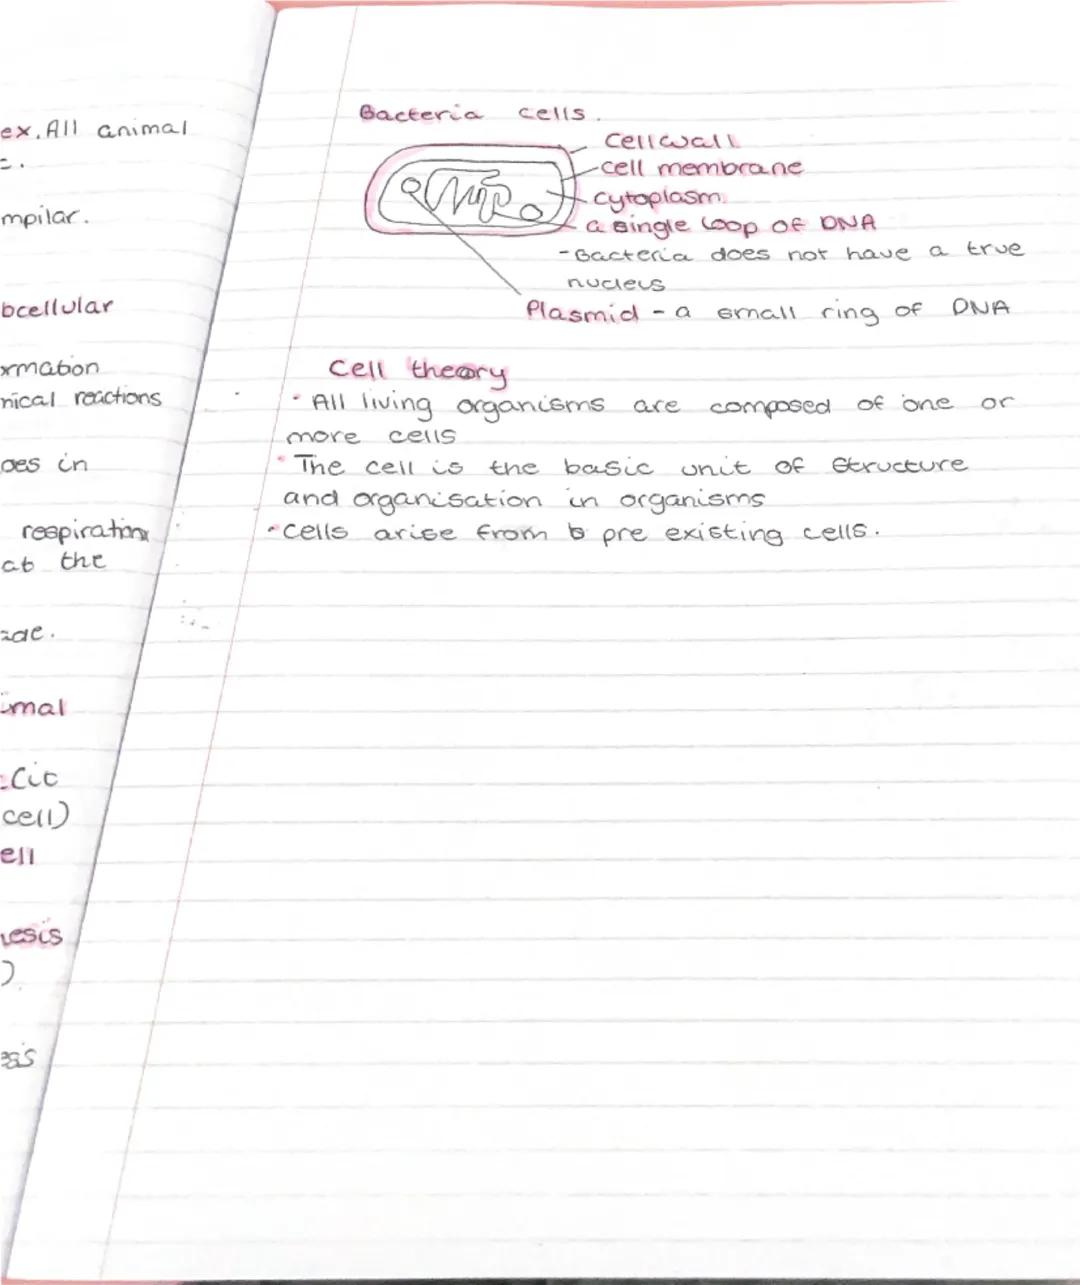 ex. All animal
mpilar.
bcellular
rmation
mical reactions
oes in
respiration
at the
imal
cell)
ell
esis
Bacteria cells.
Cell wall
cell membrane
cytoplasm
a single loop of DNA
- Bacteria does not have a true
nucleus
Plasmid - a small ring of DNA
Cell theory
• All living organisms are composed of one or
more cells
• The cell is the basic unit of structure
and organisation in organisms
• Cells arise from pre existing cells.